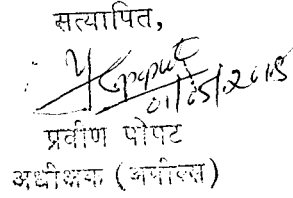 सत्यापित,
01/05/2018
प्रवीण पोपट
अधीक्षक (अपील्स)